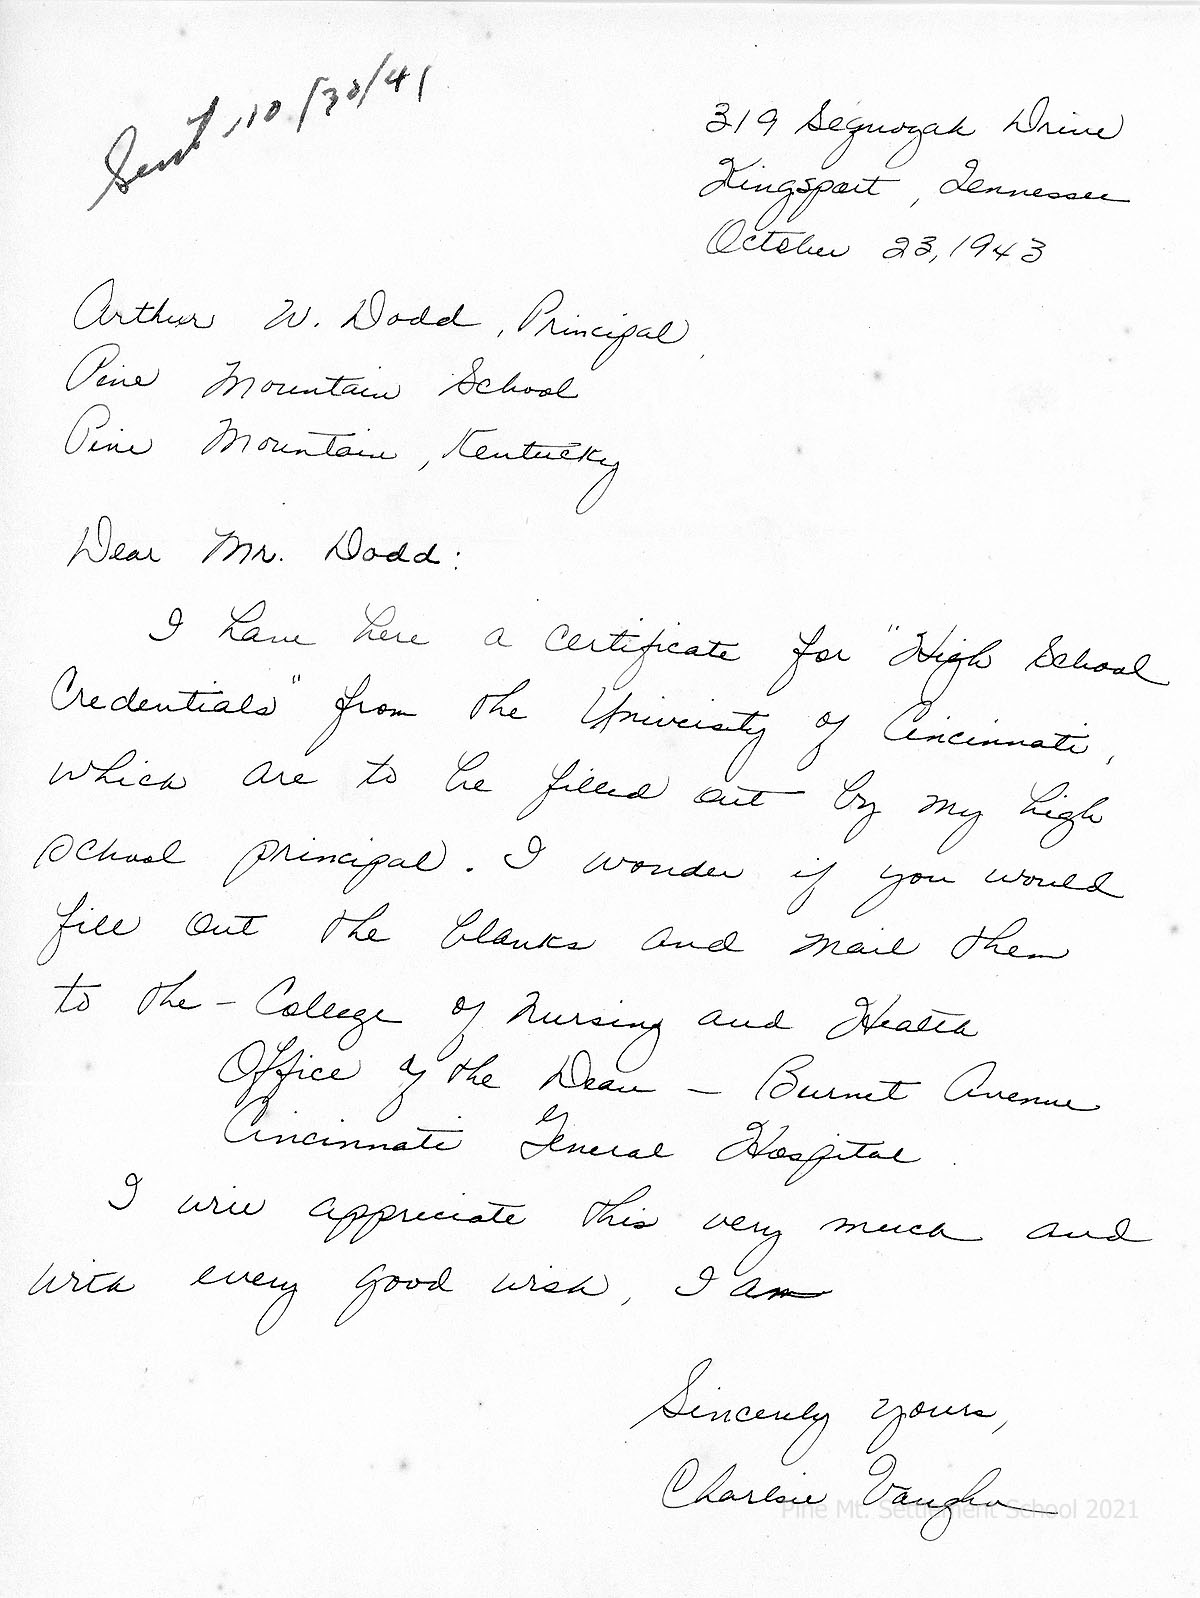 Sent 10/30/41
319 Sequoyah Drive
Kingsport, Tennessee
October 23, 1943
Arthur W. Dodd, Principal
Pine Mountain School
Pine Mountain, Kentucky
Dear Mr. Dodd:
I have here a certificate for "High School
Credentials" from the University of Cincinnati,
which are to be filled out by my high
school principal. I wonder if you would
fill out the blanks and mail them
to the - College of Nursing and Health
Office of the Dean - Burnet Avenue
Cincinnati General Hospital.
I will appreciate this very much and
with every good wish, I am
Sincerely yours,
Charlsie Vaughn
Pine Mt. Settlement School 2021